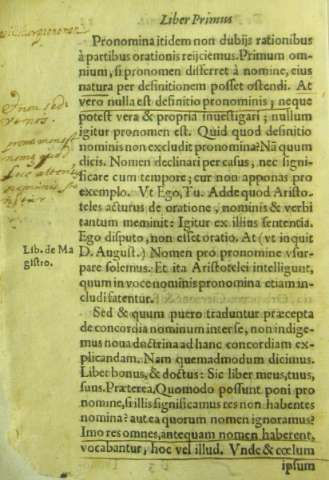 Liber Primus
Pronomina itidem non dubijs rationibus
à partibus orationis reijciemus. Primum om-
nium, si pronomen differret à nomine, eius
natura per definitionem posset ostendi. At
vero nulla est definitio pronominis; neque
potest vera & propria inuestigari; nullum
igitur pronomen est. Quid quod definitio
nominis non excludit pronomina? Nã quum
dicis. Nomen declinari per casus, nec signi-
ficare cum tempore; cur non apponas pro
exemplo. Vt Ego, Tu. Adde quod Aristo-
teles acturus de oratione, nominis & verbi
tantum meminit: Igitur ex illius sententia.
Ego disputo, non esset oratio. At (vt inquit
Lib. de Ma
gistro.
D. August.) Nomen pro pronomine vsur-
pare solemus. Et ita Aristotelei intelligunt,
quum in voce nominis pronomina etiam in-
cludi fatentur.
Sed & quum puero traduntur præcepta
de concordia nominum interse, non indige-
mus noua doctrina ad hanc concordiam ex-
plicandam. Nam quemadmodum dicimus.
Liber bonus, & doctus: Sic liber meus, tuus,
suus. Præterea. Quomodo possunt poni pro
nomine, si illis significamus res non habentes
nomina? aut ea quorum nomen ignoramus?
Imo res omnes, antequam nomen haberent,
vocabantur, hoc vel illud. Vnde & cœlum
ipsum